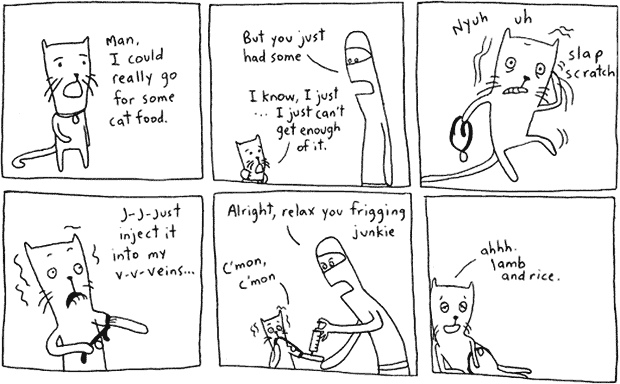 Man,
I could
really go
for some
cat food.
But you just
had some
I know, I just
... I just can't
get enough
of it.
Nyuh uh
slap
scratch
J-J-Just
inject it
into my
v-v-veins...
Alright, relax you frigging
junkie
C'mon,
c'mon
ahhh.
lamb
and rice.